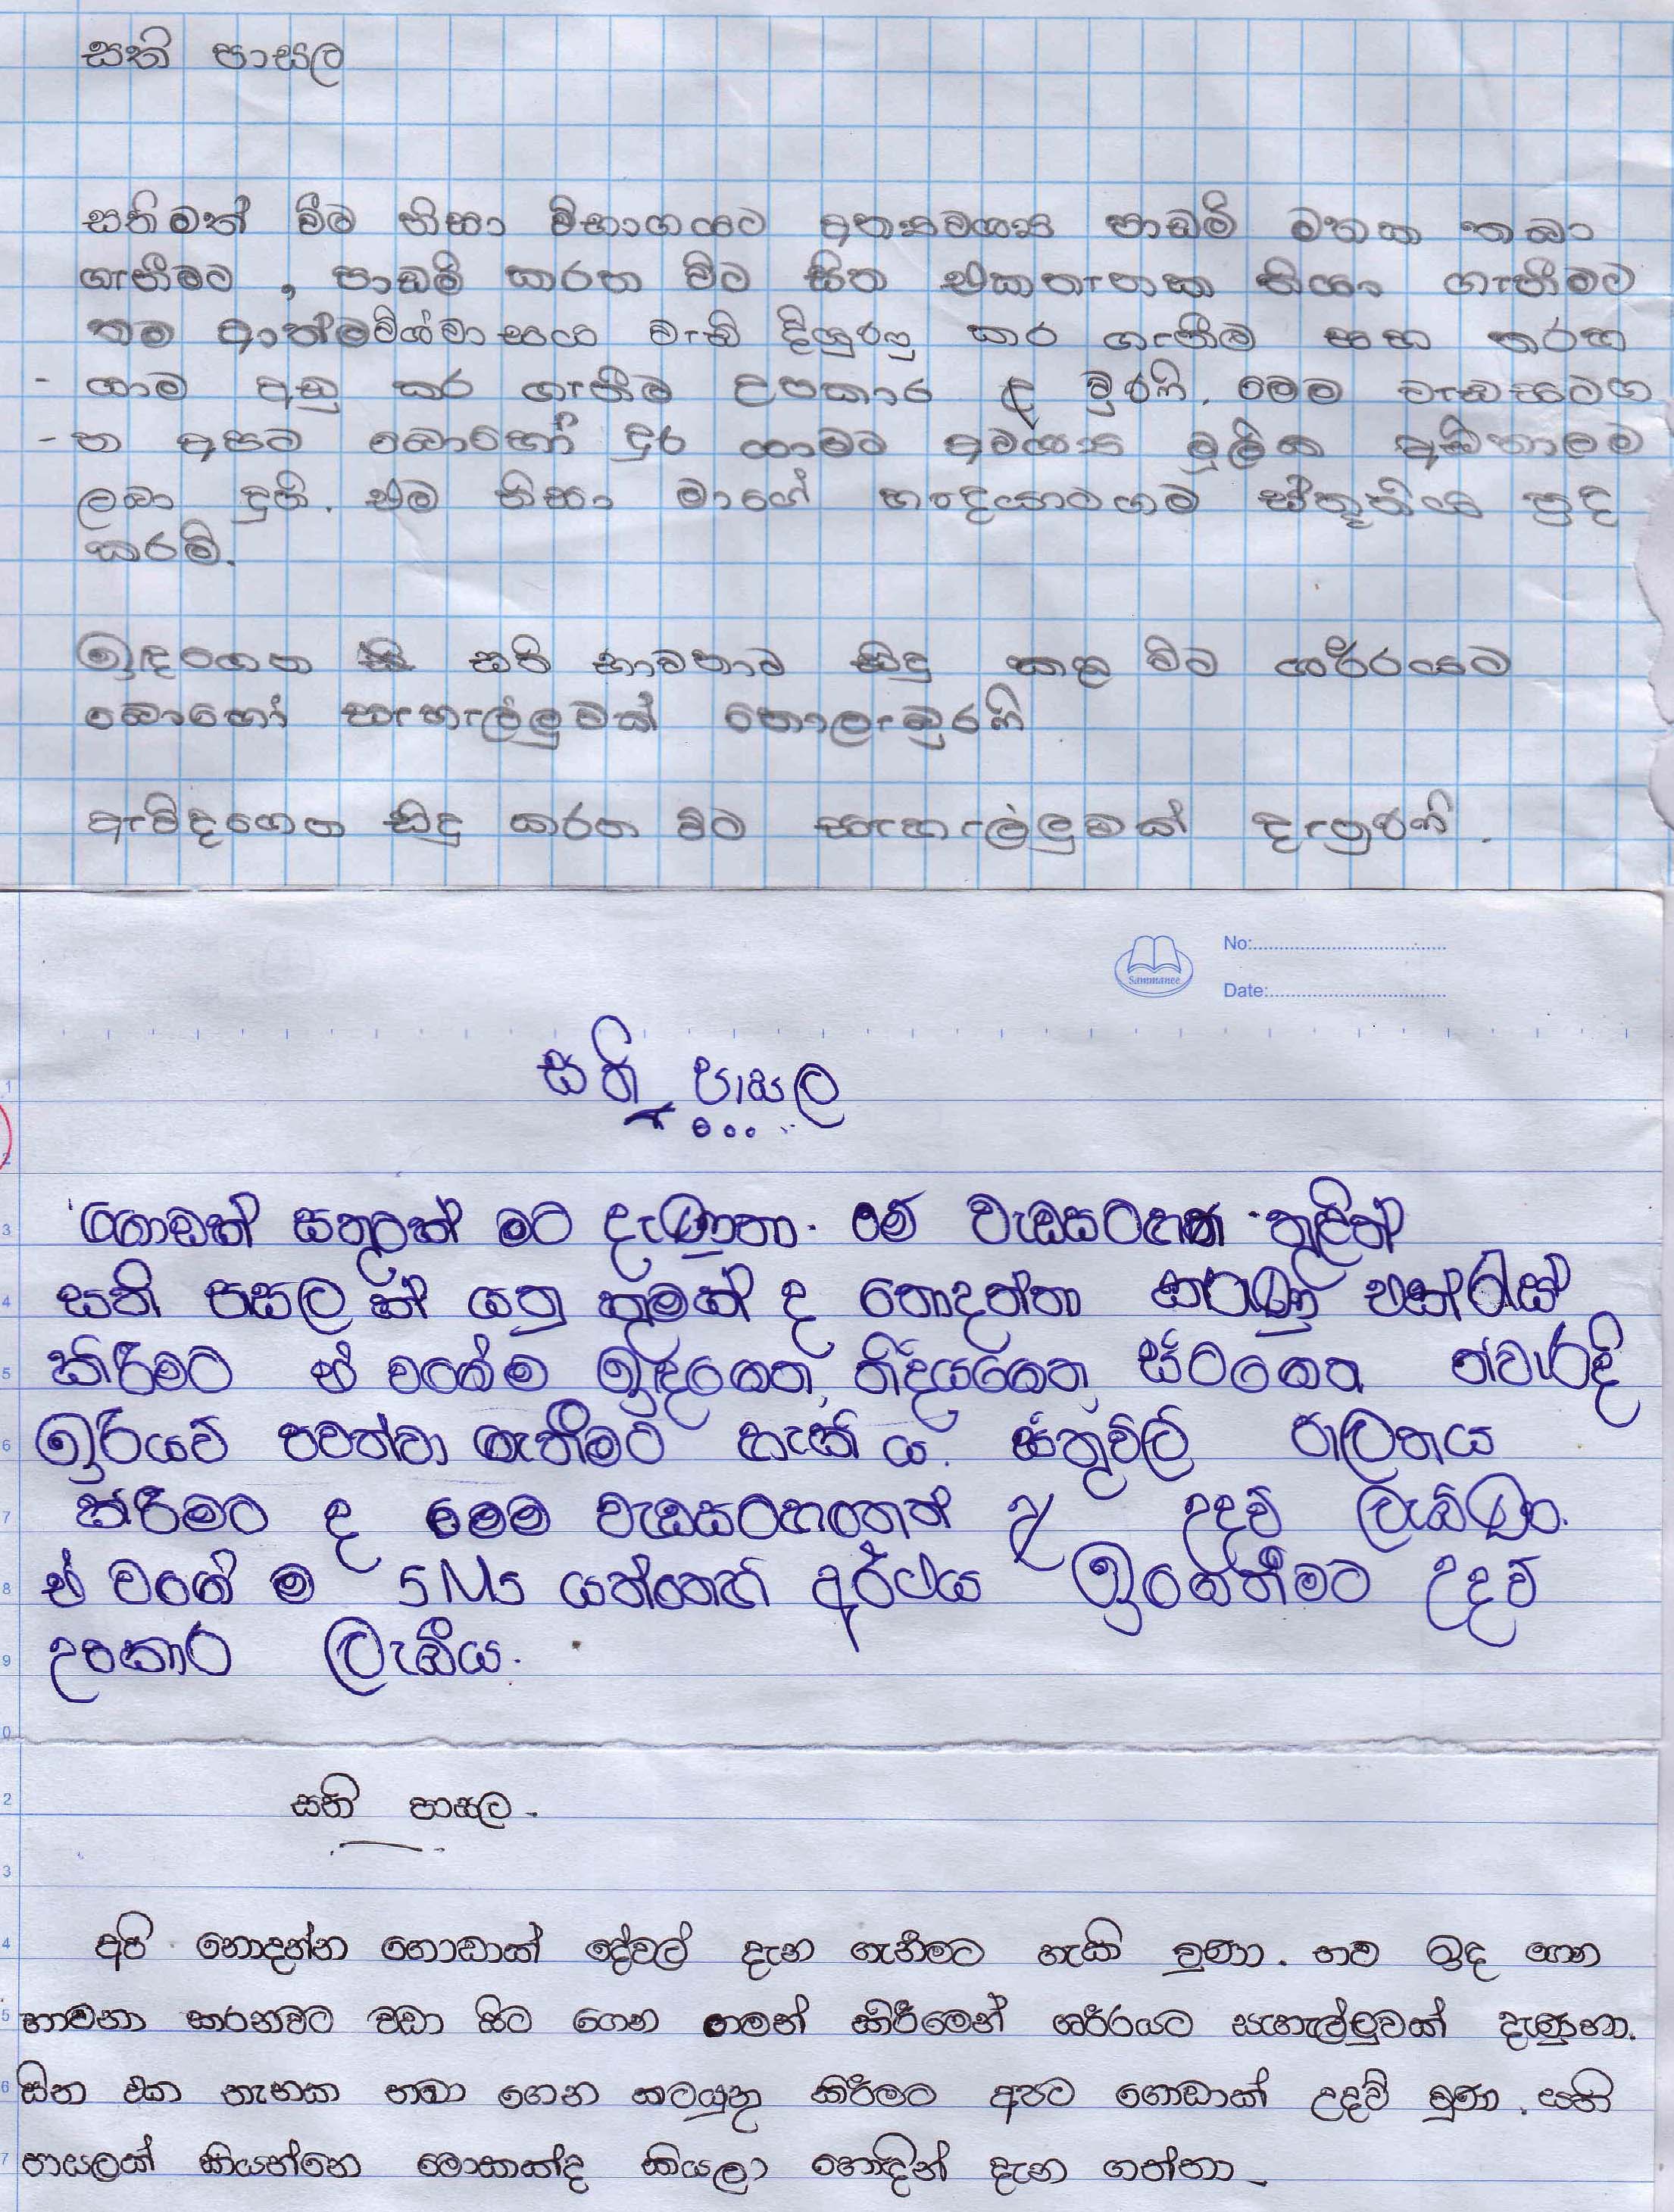 සති පාසල
සතිමත් වීම නිසා විභාගයට අත්‍යවශ්‍ය පාඩම් මතක තබා
ගැනීමට , පාඩම් කරන විට සිත එකතැනක තියා ගැනීමට
තම ආත්මවිශ්වාසය වැඩි දියුණු කර ගැනීම සහ තරහ
- යාම අඩු කර ගැනීම උපකාර වුණි. මෙම වැඩසටහ
- න අපට බොහෝ දුර යාමට අවශ්‍ය මූලික අඩිතාලම
ලබා දුනි. එම නිසා මාගේ හෘදයාංගම ස්තූතිය පුද
කරමි.
ඉඳගෙන සති භාවනාව සිදු කළ විට ශරීරයට
බොහෝ සැහැල්ලුවක් නොලැබුණි
ඇවිදගෙන සිදු කරන විට සැහැල්ලුවක් දැනුණි.
No:
Sammanee
Date:
සති පාසල
ගොඩක් සතුටක් මට දැණුනා. මේ වැඩසටහන තුළින්
සති පාසලක් යනු කුමක් ද නොදන්නා කරුණු එක්රැස්
කිරීමට ඒ වගේම ඉඳගෙන, නිදියගෙන, සිටගෙන න්වාරදි
ඉරියව් පවත්වා ගැනීමට හැකි ය. සිතුවිලි පාලනය
කිරීමට ද මෙම වැඩසටහනෙන් උදව් ලැබුණා.
ඒ වගේ ම 5Ms යන්නෙහි අර්ථය ඉගෙනීමට උදව්
උපකාර ලැබීය.
සති පාසල -
අපි නොදන්න ගොඩාක් දේවල් දැන ගැනීමට හැකි වුණා. තව ඉඳ ගෙන
භාවනා කරනවට වඩා සිට ගෙන ගමන් කිරීමෙන් ශරීරයට සැහැල්ලුවක් දැණුනා.
සිත එක තැනක තබා ගෙන කටයුතු කිරීමට අපට ගොඩාක් උදව් වුණා. සති
පාසලක් කියන්නෙ මොකක්ද කියලා හොඳින් දැන ගත්තා -